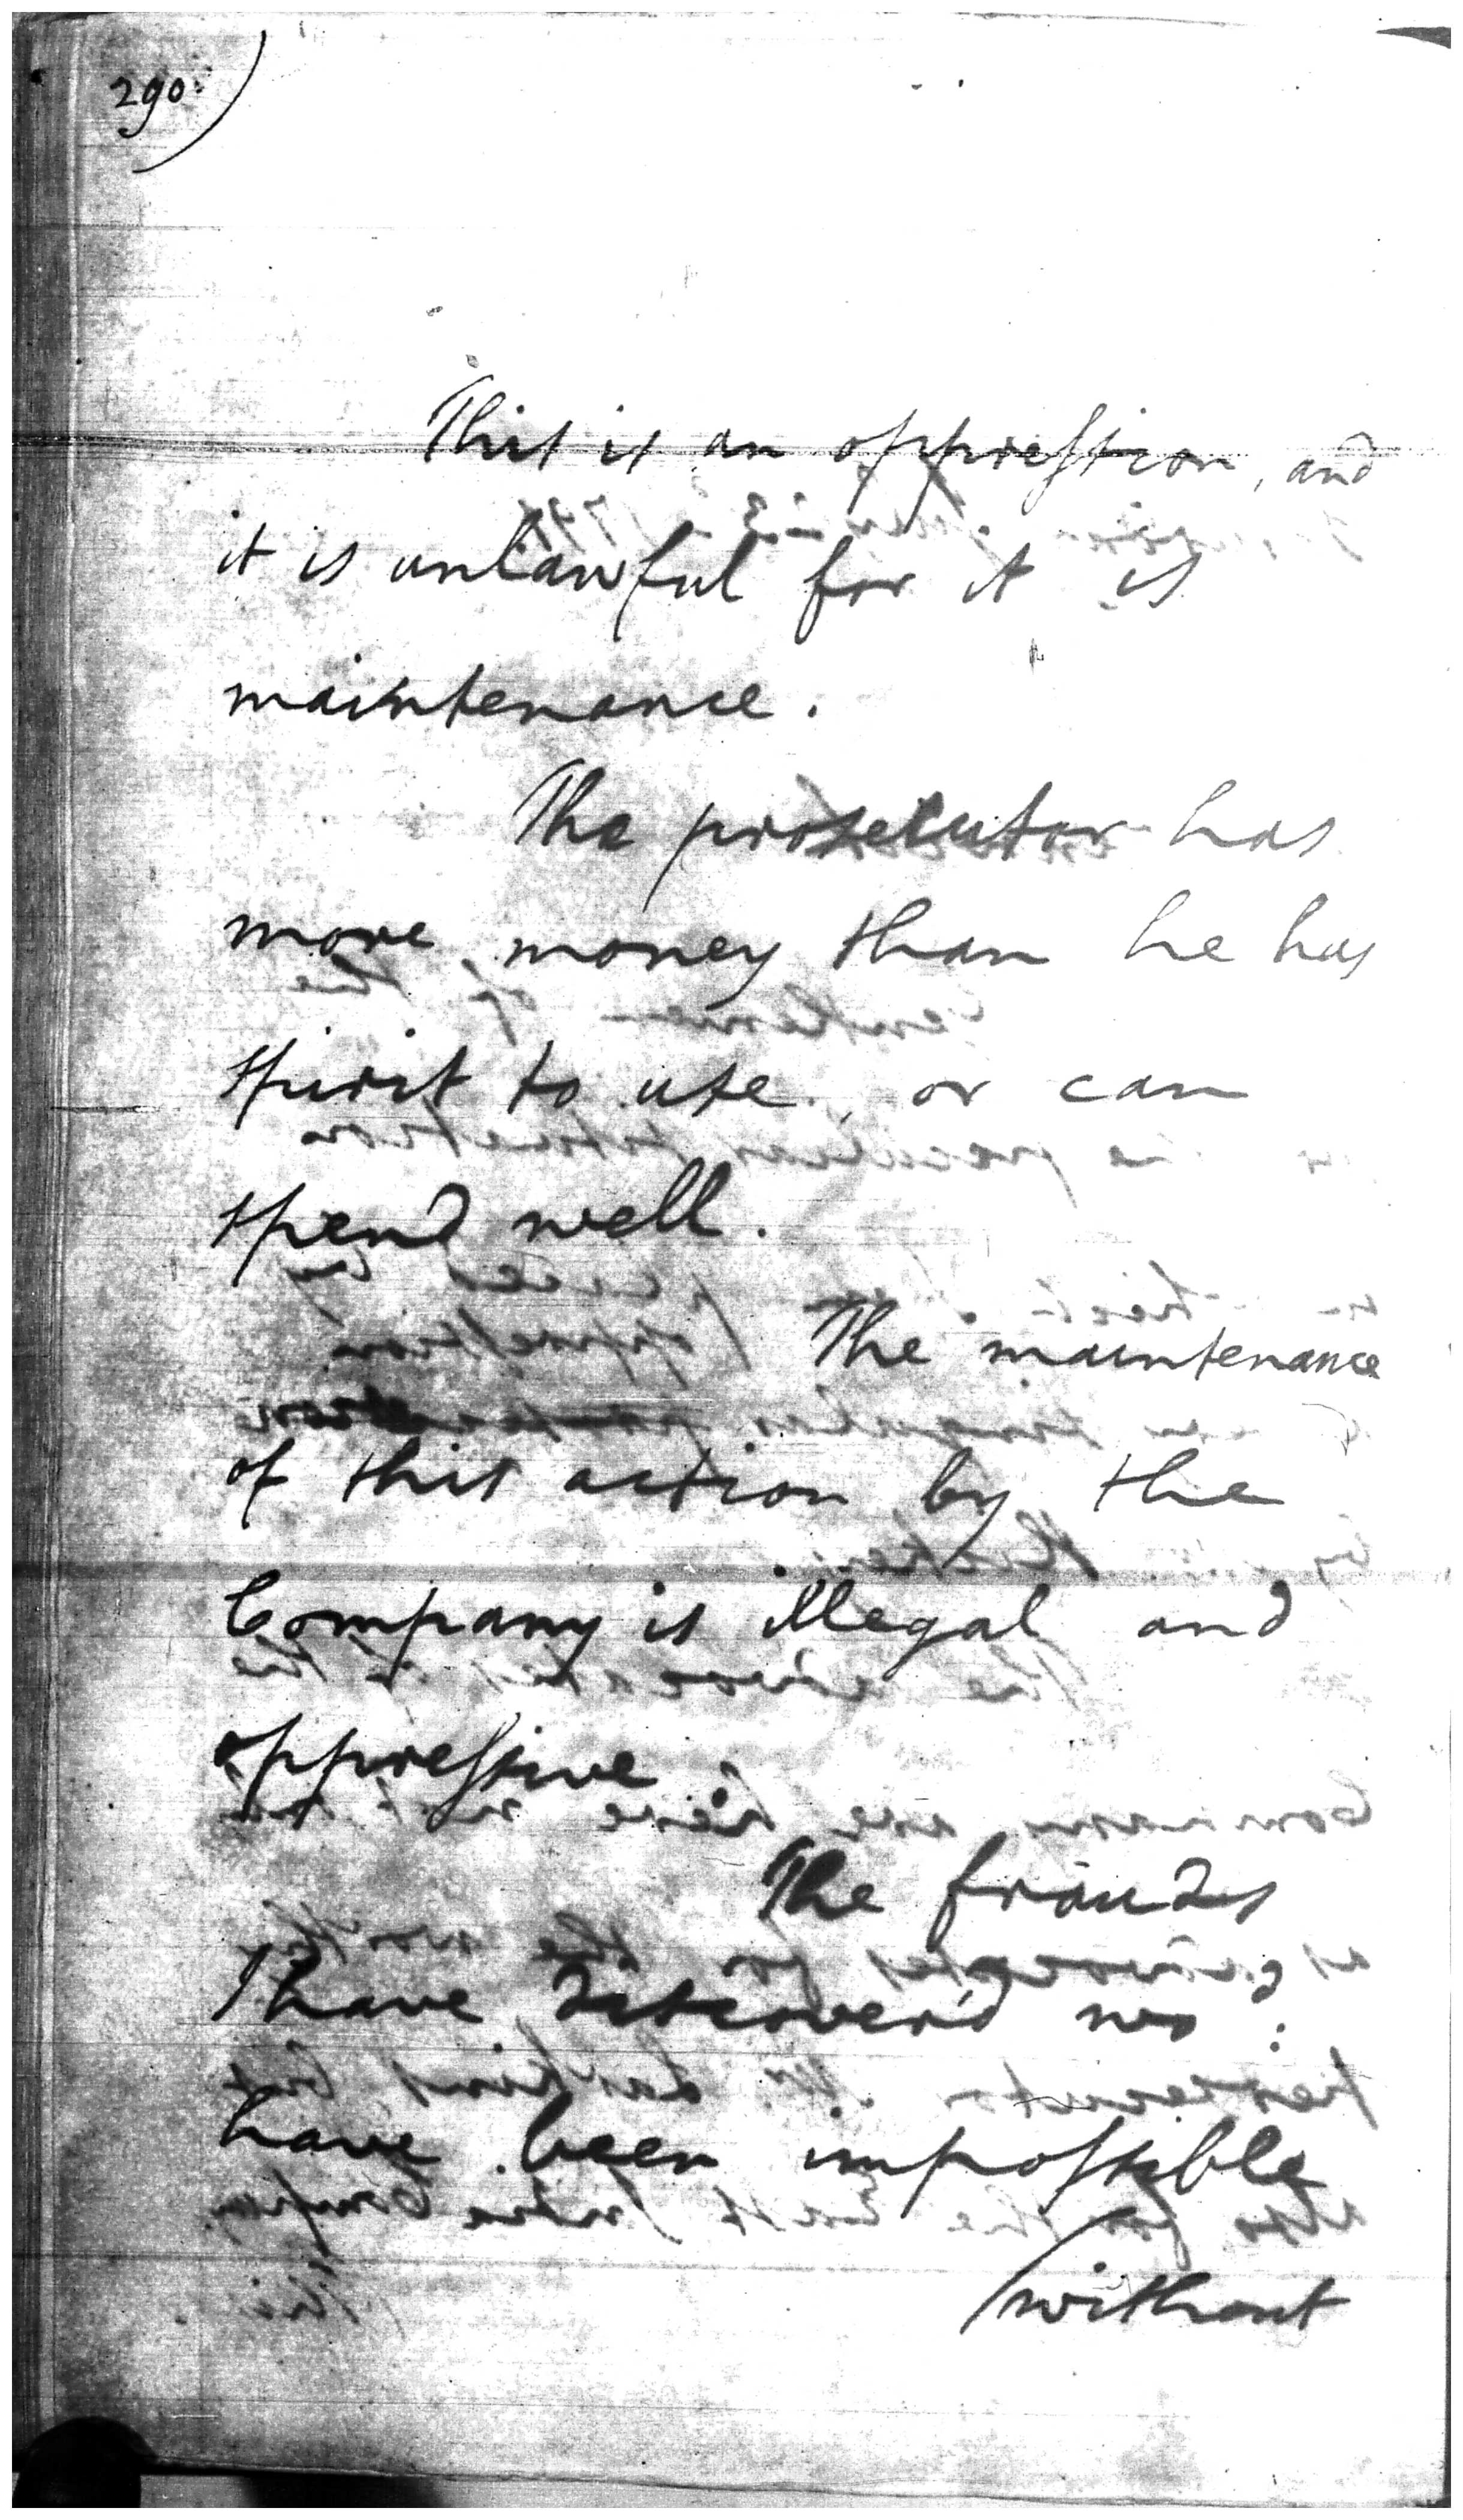 290
This is an oppression, and
it is unlawful for it is
maintenance.
The prosecutor has
more money than he has
spirit to use, or can
spend well.
The maintenance
of this action by the
Company is illegal and
oppressive.
The frauds
I have discover'd wd:
have been impossible
without